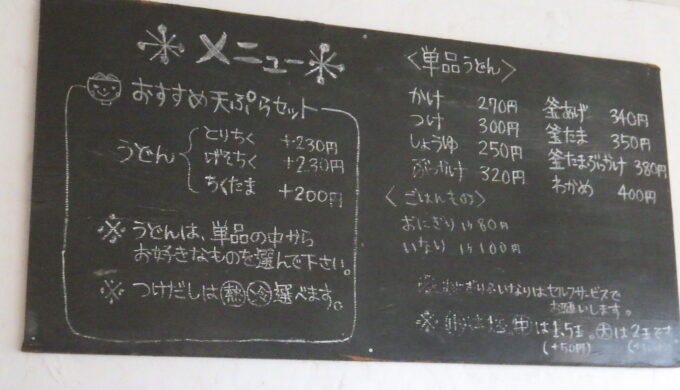 メニュー
おすすめ天ぷらセット
うどん
とりちく +230円
げそちく +230円
ちくたま +200円
※ うどんは、単品の中から
お好きなものを選んで下さい。
※ つけだしは 熱 冷 選べます。
〈単品うどん〉
かけ 270円
つけ 300円
しょうゆ 250円
ぶっかけ 320円
釜あげ 340円
釜たま 350円
釜たまぶっかけ 380円
わかめ 400円
〈ごはんもの〉
おにぎり 1ケ80円
いなり 1ケ100円
※ おにぎり、いなりはセルフサービスで
お願いします。
※ 中 は1.5玉。大 は2玉です
(+50円)